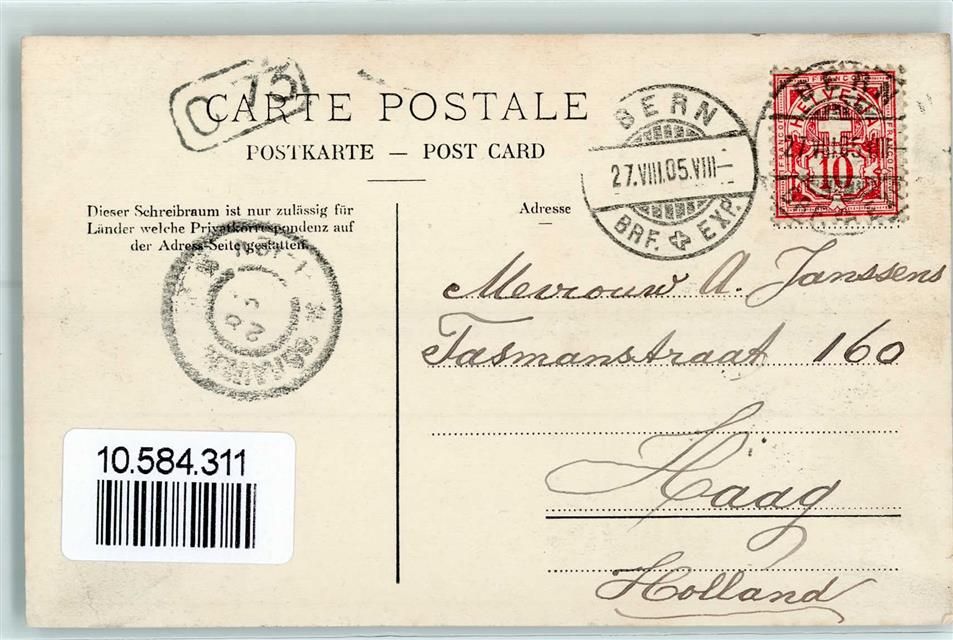 C 75
CARTE POSTALE
POSTKARTE — POST CARD
BERN
27.VIII.05.VIII—
BRF. EXP.
FRANCO
HELVETIA
10
Dieser Schreibraum ist nur zulässig für
Länder welche Privatkorrespondenz auf
der Adress-Seite gestatten.
Adresse
Mevrouw A. Janssens
Tasmanstraat 160
Haag
Holland
10.584.311